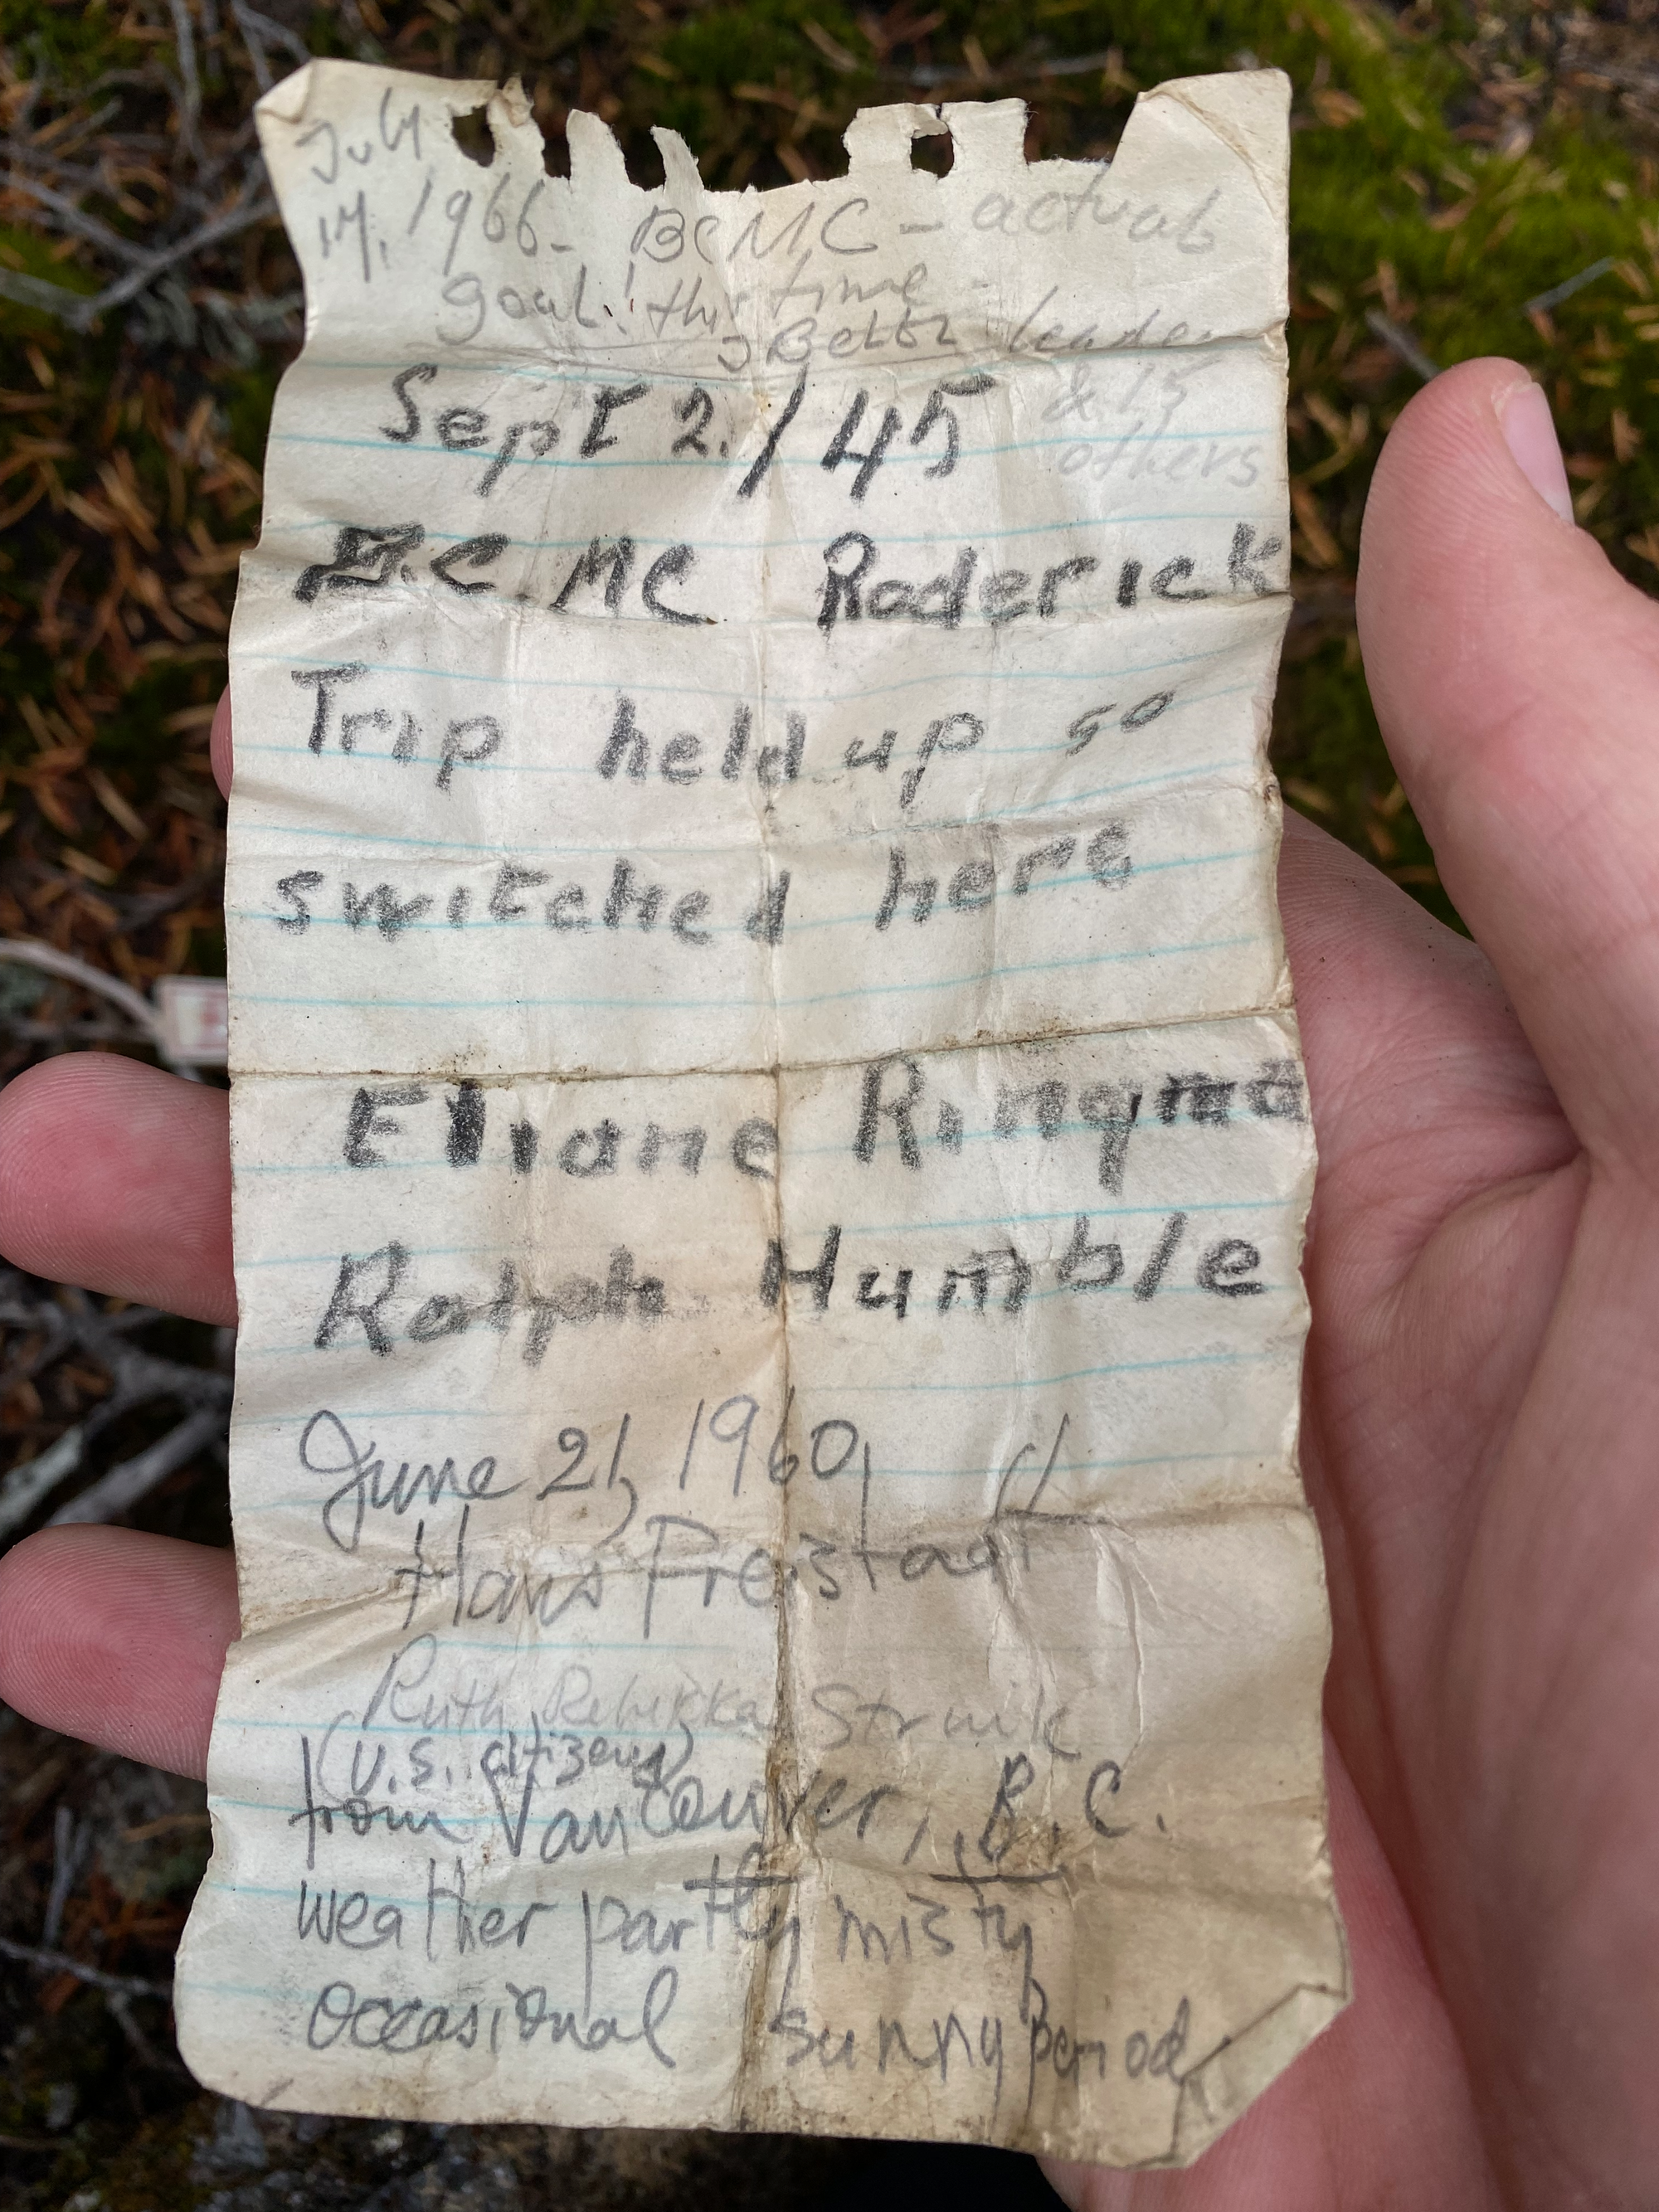 July
17, 1966 - BCMC - actual
goal! this time -
leader
& 15
others
Sept 2./45
B.C.MC Roderick
Trip held up so
switched here
Eliane
Ralph Humble
June 21, 1960,
Hans Freistadt
Ruth Rebekka Struik
(U.S. citizens)
from Vancouver, B.C.
weather partly misty
occasional sunny period